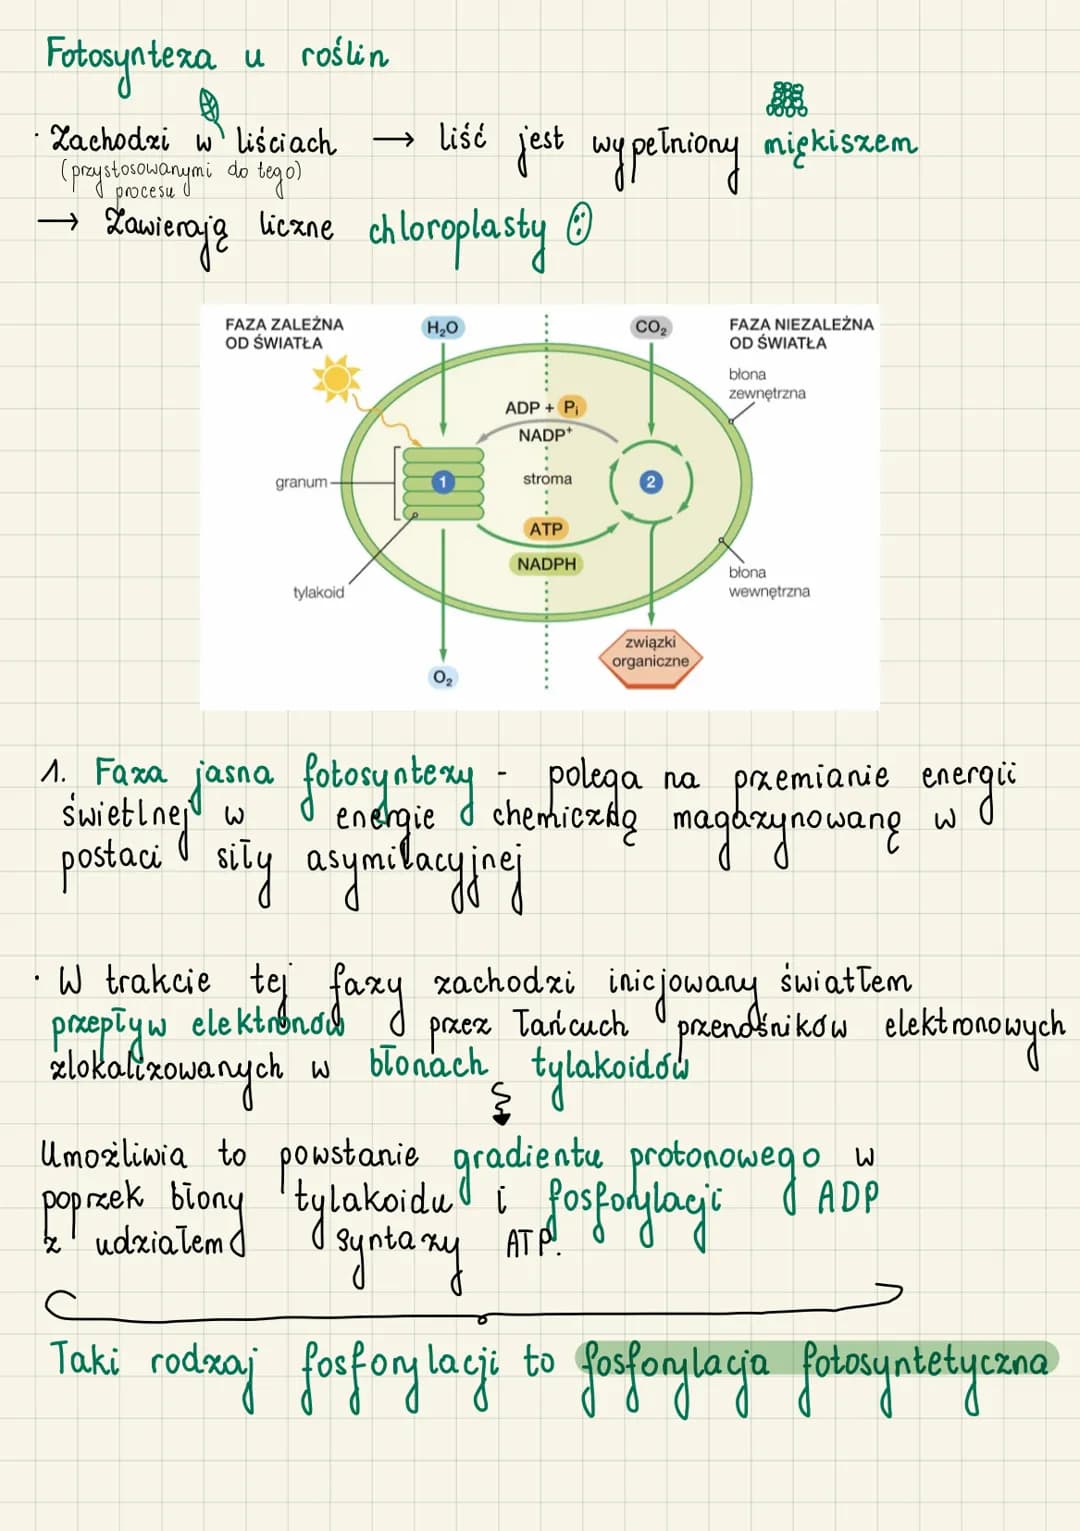 Fotosynteza u roślin
· Zachodzi w liściach → liść jest wypełniony miękiszem
(przystosowanymi do tego)
procesu
→ Zawierają liczne chloroplasty
FAZA ZALEŻNA
OD ŚWIATŁA
H₂O
CO₂
FAZA NIEZALEŻNA
OD ŚWIATŁA
błona
zewnętrzna
ADP + Pᵢ
NADP⁺
granum
1
stroma
2
ATP
NADPH
tylakoid
błona
wewnętrzna
związki
organiczne
O₂
1. Faza jasna fotosyntezy - polega na przemianie energii
świetlnej w energie chemiczną magazynowanę w
postaci siły asymilacyjnej
· W trakcie tej fazy zachodzi inicjowany światłem
przepływ elektronów przez łańcuch przenośników elektronowych
zlokalizowanych w błonach tylakoidów
Umożliwia to powstanie gradientu protonowego w
poprzek błony tylakoidu i fosforylacji ADP
z udziałem syntazy ATP.
Taki rodzaj fosforylacji to fosforylacja fotosyntetyczna